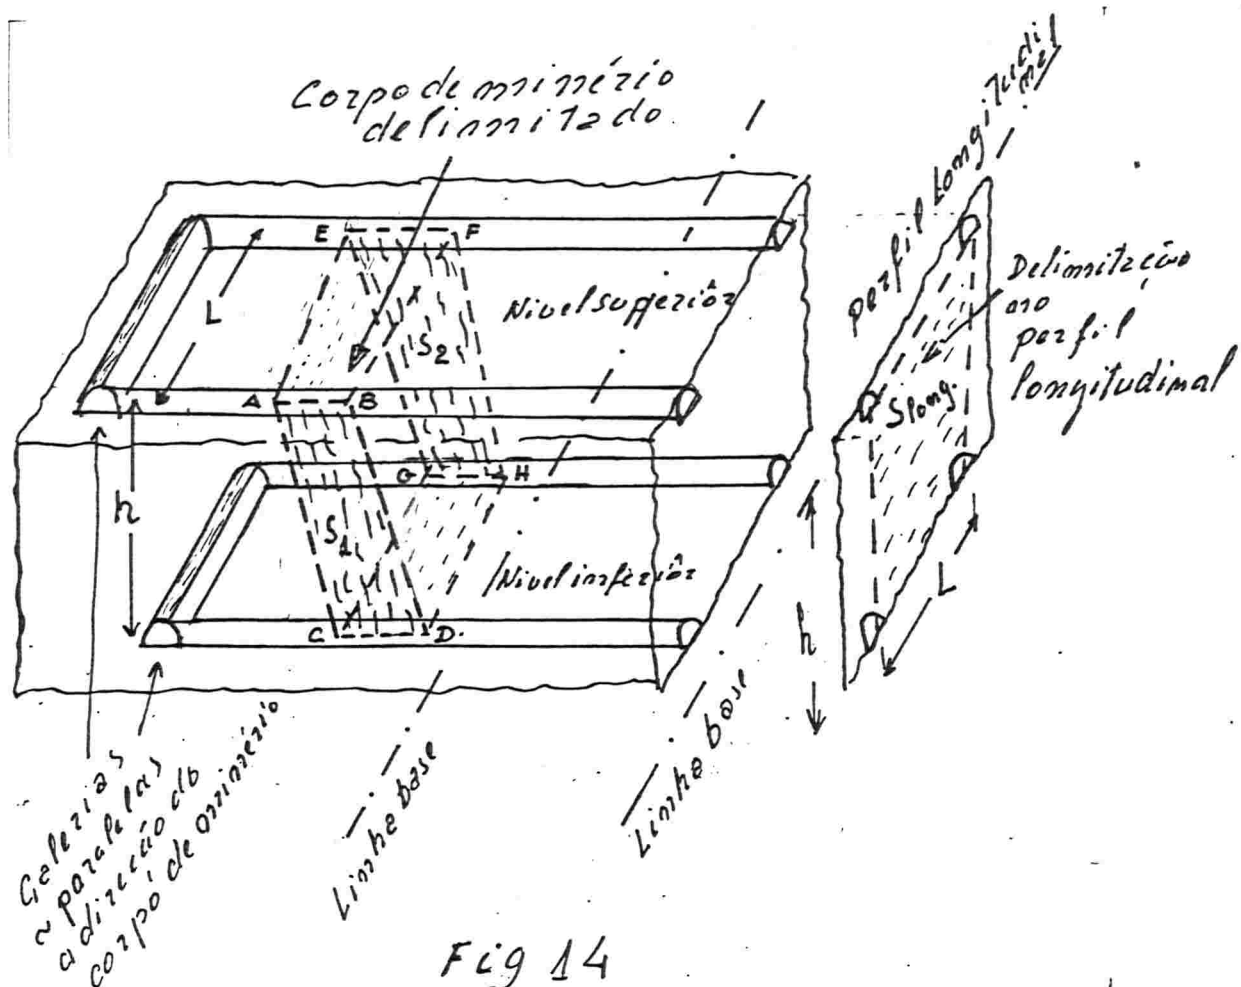 Corpo de minério
delimitado.
perfil Longitudi
nal
E F
L
Nivel superiôr
S2
A B
Delimitação
no
perfil
longitudinal
Slong.
h
G H
S1
Nivel inferiôr
C D.
L
h
Galerias
≈ paralelas
a direcção do
corpo de minério
Linha base
Linha base
Fig 14